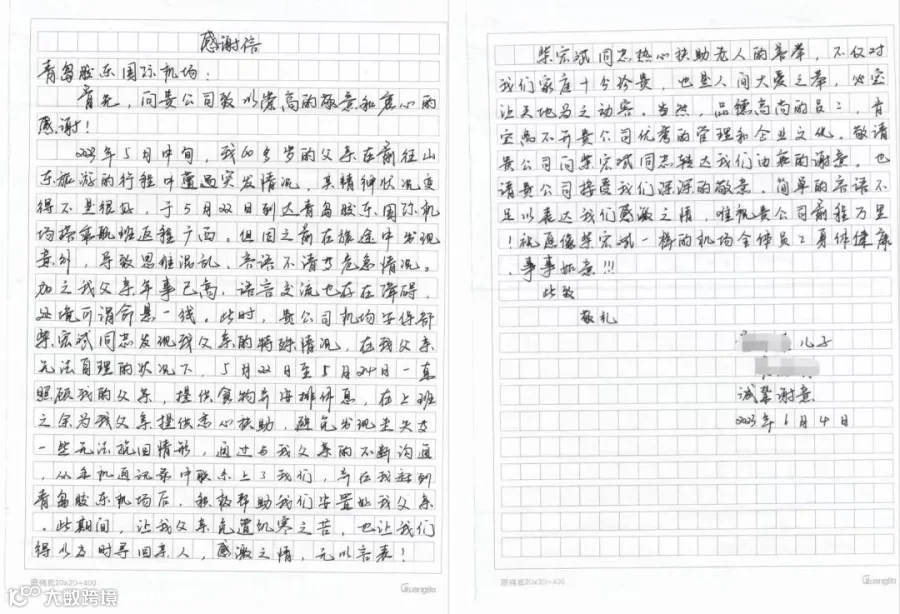 感谢信
青岛胶东国际机场：
首先，向贵公司致以崇高的敬意和衷心的
感谢！
2023年5月中旬，我60多岁的父亲在前往山
东旅游的行程中遭遇突发情况，其精神状况变
得不是很好，于5月22日到达青岛胶东国际机
场搭乘航班返程广西。但因之前在旅途中发现
意外，导致思维混乱、言语不清等危急情况。
加之我父亲年事已高，语言交流也存在障碍，
处境可谓命悬一线。此时，贵公司机场安保部
柴宏斌同志发现我父亲的特殊情况，在我父亲
无法自理的状况下，5月22日至5月24日一直
照顾我的父亲，提供食物并安排休息，在上班
之余为我父亲提供悉心扶助，避免发现走失等
一些无法挽回情形，通过与我父亲的不断沟通
，从手机通讯录中联系上了我们，并在我赶到
青岛胶东机场后，积极帮助我们安置好我父亲
。此期间，让我父亲免遭饥寒之苦，也让我们
得以及时寻回亲人，感激之情，无以言表！
柴宏斌同志热心扶助老人的善举，不仅对
我们家庭十分珍贵，也是人间大爱之举，必定
让天地为之动容。当然，品德高尚的员工，肯
定离不开贵公司优秀的管理和企业文化。敬请
贵公司向柴宏斌同志转达我们由衷的谢意，也
请贵公司接受我们深深的敬意。简单的言语不
足以表达我们感激之情，唯祝贵公司前程万里
！祝愿像柴宏斌一样的机场全体员工身体健康
、事事如意！！！
此致
敬礼
儿子
诚挚谢意
2023年6月4日
20×20=400
GuangBo
20×20=400
GuangBo
大数跨境